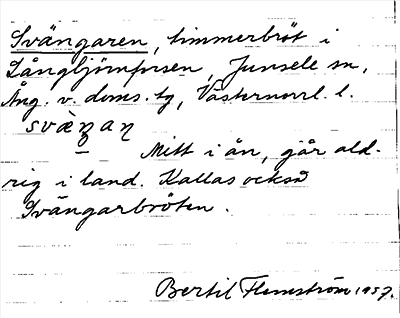 Svängaren, timmerbröt i
Långbjörnforsen, Junsele sn,
Ång. v. doms. tg, Västernorrl. l.
svæ̀ŋaṇ
Mitt i ån, går ald-
rig i land. Kallas också
Svängarbröten.
Bertil Flemström 1957.